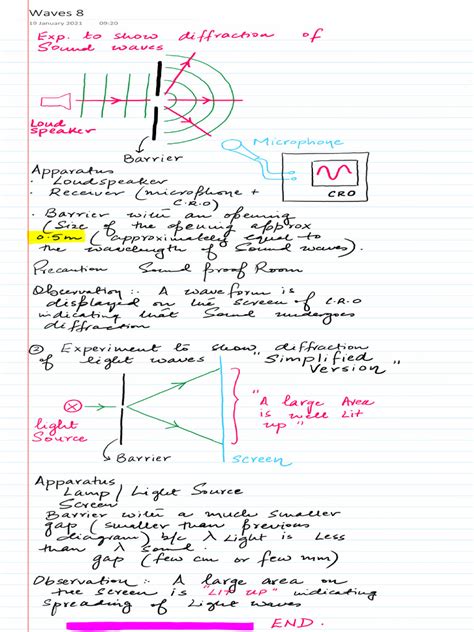 Waves 8
19 January 2021 09:20
Exp. to show diffraction of
Sound waves
Loud
speaker
Barrier
Microphone
CRO
Apparatus
· Loudspeaker
· Receiver (microphone +
C.R.O)
· Barrier with an opening
(Size of the opening approx
0.5m (approximately equal to
the wavelength of Sound waves).
Precaution Sound proof Room
Observation :- A waveform is
displayed on the screen of C.R.O
indicating that Sound undergoes
diffraction
② Experiment to show diffraction
of light waves "Simplified
Version"
light
Source
Barrier
Screen
"A large Area
is well Lit
up"
Apparatus
Lamp / Light Source
Screen
Barrier with a much smaller
gap (smaller than previous
diagram) b/c λ Light is Less
than λ Sound.
gap (few cm or few mm)
Observation :- A large area on
the screen is "LIT UP" indicating
spreading of Light waves
END.